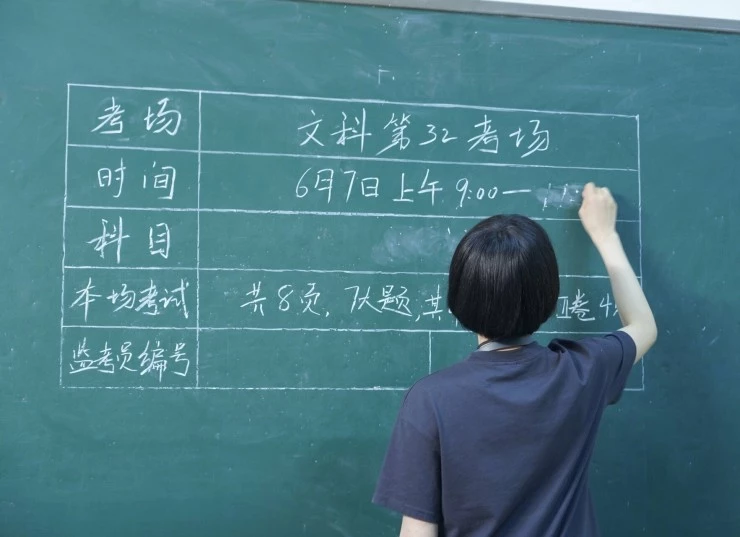 考场 文科第32考场
时间 6月7日上午 9:00—11:
科目
本场考试 共8页，7大题，共 Ⅱ卷4
监考员编号